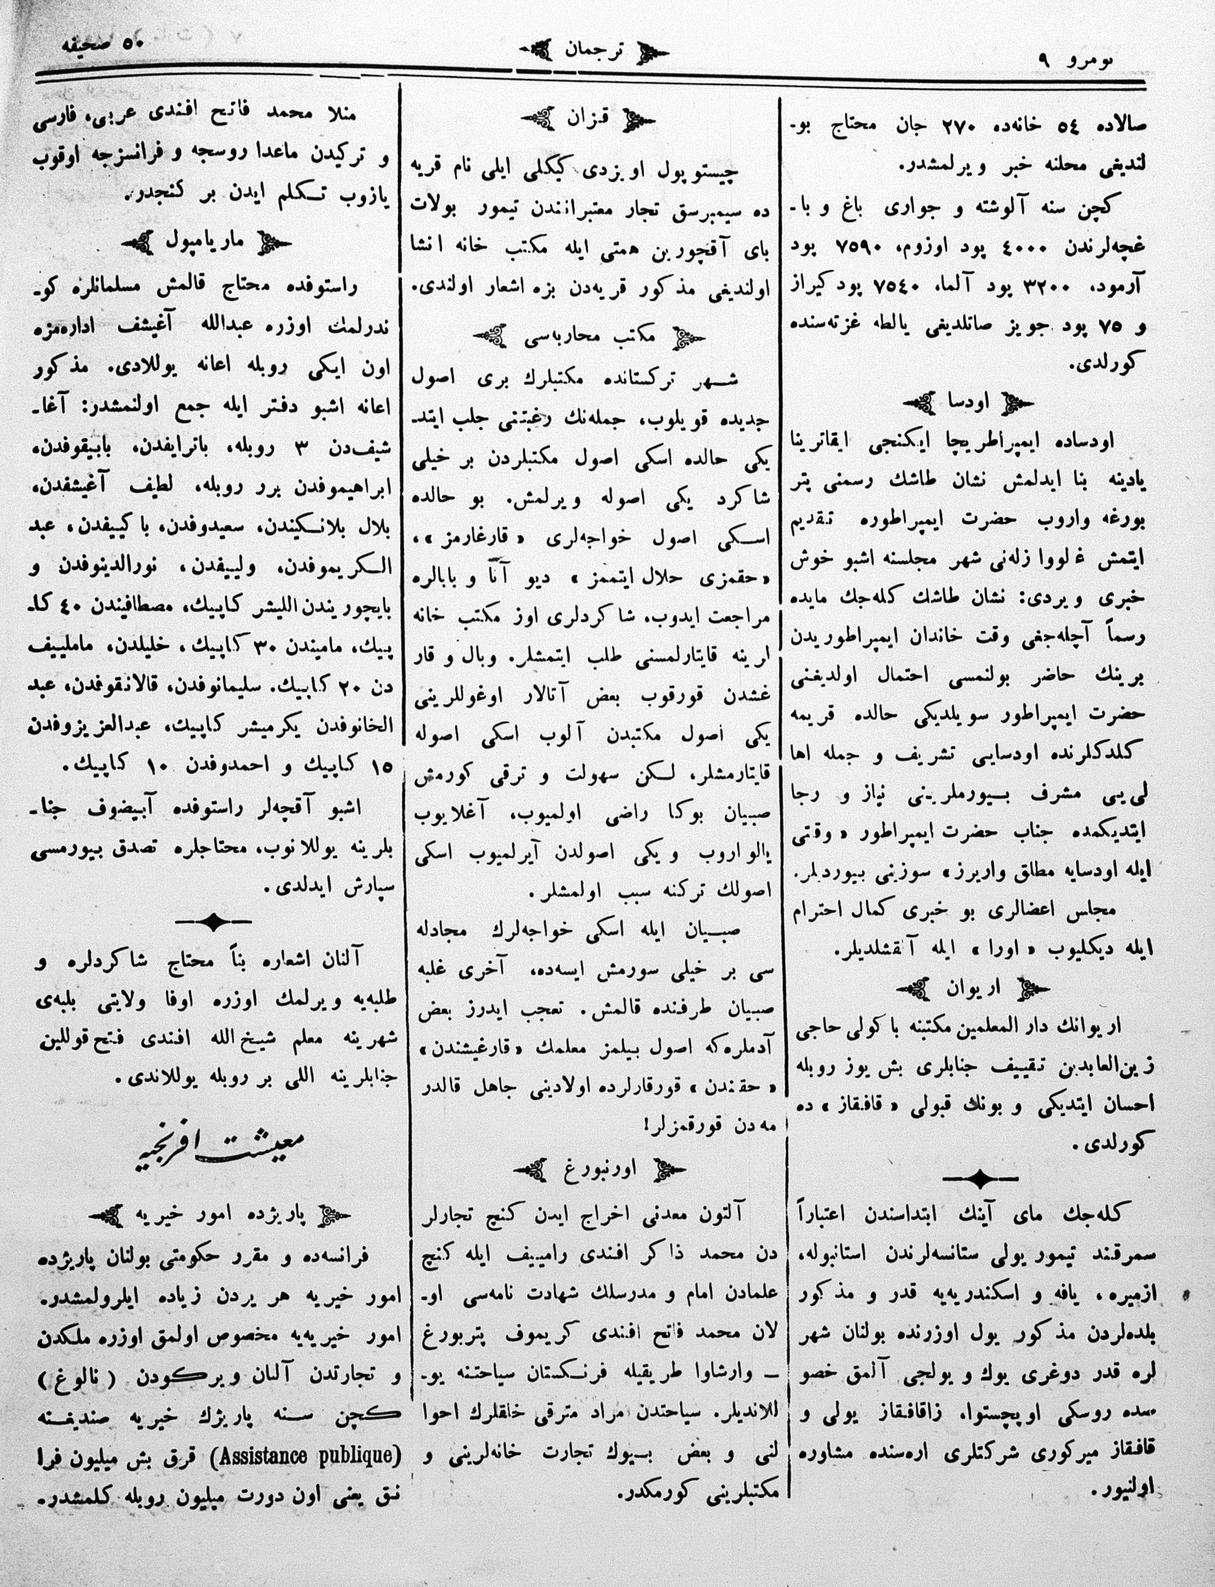 نومرو ٩
ترجمان
٥٠ صحيفه
صالاده ٥٤ خانه‌ده ٢٧٠ جان محتاج بو‍ـ
لنديغى محلنه خبر ويرلمشدر.
كچن سنه آلوشته و جوارى باغ و با‍ـ
غچه‌لرندن ٤٠٠٠ پود اوزوم، ٧٥٩٠ پود
آرمود، ٣٢٠٠ پود آلما، ٧٥٤٠ پود كيراز
و ٧٥ پود جويز صاتلديغى يالطه غزته‌سنده
كورلدى.
اودسا
اودساده ايمپراطريچا ايكنجى ايقاترينا
يادينه بنا ايدلمش نشان طاشك رسمنى پتر
بورغه واروب حضرت ايمپراطوره تقديم
ايتمش غالووا زله‌نى شهر مجلسنه اشبو خوش
خبرى ويردى: نشان طاشك كله‌جك مايده
رسماً آچله‌جغى وقت خاندان ايمپراطوريدن
برينك حاضر بولنمسى احتمال اولديغنى
حضرت ايمپراطور سويلديكى حالده قريمه
كلدكلرنده اودسايى تشريف و جمله اها
لى‌يى مشرف بيورملرينى نياز و رجا
ايتديكمده جناب حضرت ايمپراطور «وقتى
ايله اودسايه مطلق واريرز» سوزينى بيورديلر.
مجلس اعضالرى بو خبرى كمال احترام
ايله ديكليوب «اورا» ايله آلقشلديلر.
اريوان
اريوانك دار المعلمين مكتبنه باكولى حاجى
زين‌العابدين تقييف جنابلرى بش يوز روبله
احسان ايتديكى و بونك قبولى «قافقاز» ده
كورلدى.
كله‌جك ماى آينك ابتداسندن اعتباراً
سمرقند تيمور يولى ستانسه‌لرندن استانبوله،
ازميره، يافه و اسكندريه‌يه قدر و مذكور
بلده‌لردن مذكور يول اوزرنده بولنان شهر
لره قدر دوغرى يوك و يولجى آلمق خصو
صده روسكى اوپچستوا، زاقافقاز يولى و
قافقاز ميركورى شركتلرى اره‌سنده مشاوره
اولنيور.
قزان
چيستوپول اويزدى كيكلى ايلى نام قريه
ده سيمبرسق تجار معتبرانندن تيمور بولات
باى آقچورين همتى ايله مكتب خانه انشا
اولنديغى مذكور قريه‌دن بزه اشعار اولندى.
مكتب محاربه‌سى
شهر تركستانده مكتبلرك برى اصول
جديده قويلوب، جمله‌نك رغبتنى جلب ايتد‍ـ
يكى حالده اسكى اصول مكتبلردن بر خيلى
شاكرد يكى اصوله ويرلمش. بو حالده
اسكى اصول خواجه‌لرى «قارغارمز»،
«حقمزى حلال ايتممز» ديو آنا و بابالره
مراجعت ايدوب، شاكردلرى اوز مكتب خانه
لرينه قايتارلمسنى طلب ايتمشلر. وبال و قار
غشدن قورقوب بعض آتالار اوغوللرينى
يكى اصول مكتبدن آلوب اسكى اصوله
قايتارمشلر، لكن سهولت و ترقى كورمش
صبيان بوكا راضى اولميوب، آغلايوب
يالواروب ويكى اصولدن آيرلميوب اسكى
اصولك تركنه سبب اولمشلر.
صبيان ايله اسكى خواجه‌لرك مجادله
سى بر خيلى سورمش ايسه‌ده، آخرى غلبه
صبيان طرفنده قالمش. تعجب ايدرز بعض
آدملره‌كه اصول بيلمز معلمك «قارغيشندن»
«حقندن» قورقارلرده اولادينى جاهل قالدر
مه‌دن قورقمزلر!
اورنبورغ
آلتون معدنى اخراج ايدن كنچ تجارلر
دن محمد ذاكر افندى رامييف ايله كنچ
علمادن امام و مدرسلك شهادت نامه‌سى او‍ـ
لان محمد فاتح افندى كريموف پتربورغ
ـ وارشاوا طريقيله فرنكستان سياحتنه يو‍ـ
للانديلر. سياحتدن مراد مترقى خلقلرك احوا
لنى و بعض بيوك تجارت خانه‌لرينى و
مكتبلرينى كورمكدر.
منلا محمد فاتح افندى عربى، فارسى
و تركيدن ماعدا روسجه و فرانسزجه اوقوب
يازوب تكلم ايدن بر كنجدر.
ماريامپول
راستوفده محتاج قالمش مسلمانلره كو‍ـ
ندرلمك اوزره عبدالله آغيشف اداره‌مزه
اون ايكى روبله اعانه يوللادى. مذكور
اعانه اشبو دفتر ايله جمع اولنمشدر: آغا‍ـ
شيف‌دن ٣ روبله، باترايفدن، بابيقوفدن،
ابراهيموفدن برر روبله، لطيف آغيشفدن،
بلال بلانكيندن، سعيدوفدن، باكييفدن، عبد
الكريموفدن، ولييفدن، نورالدينوفدن و
بايچوريندن الليشر كاپيك، مصطافيندن ٤٠ كا‍ـ
پيك، مامیندن ٣٠ كاپيك، خليلدن، مامليیف
دن ٢٠ كاپيك. سليمانوفدن، قالانقوفدن، عبد
الخانوفدن يكرميشر كاپيك، عبدالعزيزوفدن
١٥ كاپيك و احمدوفدن ١٠ كاپيك.
اشبو آقچه‌لر راستوفده آبيضوف جنا‍ـ
بلرينه يوللانوب، محتاجلره تصدق بيورمسى
سپارش ايدلدى.
آلنان اشعاره بناً محتاج شاكردلره و
طلبه‌يه ويرلمك اوزره اوفا ولايتى بلبه‌ى
شهرينه معلم شيخ‌الله افندى فتح‌قوللين
جنابلرينه اللى بر روبله يوللاندى.
معيشت افرنجيه
پاريژده امور خيريه
فرانسه‌ده و مقرر حكومتى بولنان پاريژده
امور خيريه هر يردن زياده ايلرولمشدر.
امور خيريه‌يه مخصوص اولمق اوزره ملكدن
و تجارتدن آلنان ويركودن (نالوغ)
كچن سنه پاريژك خيريه صنديغنه
(Assistance publique) قرق بش ميليون فرا
نق يعنى اون دورت ميليون روبله كلمشدر.